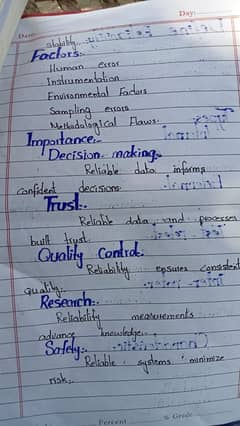 Day:
Date:
stability.
Factors:-
Human error
Instrumentation
Environmental Factors
Sampling errors
Methodological Flaws.
Importance:-
Decision making:-
Reliable data informs
confident decisions.
Trust:-
Reliable data and processes
built trust.
Quality Control:
Reliability epsures consistent
quality.
Research:-
Reliability measurements
advance knowledge.
Safety:-
Reliable systems minimize
risk.
Percent Grade